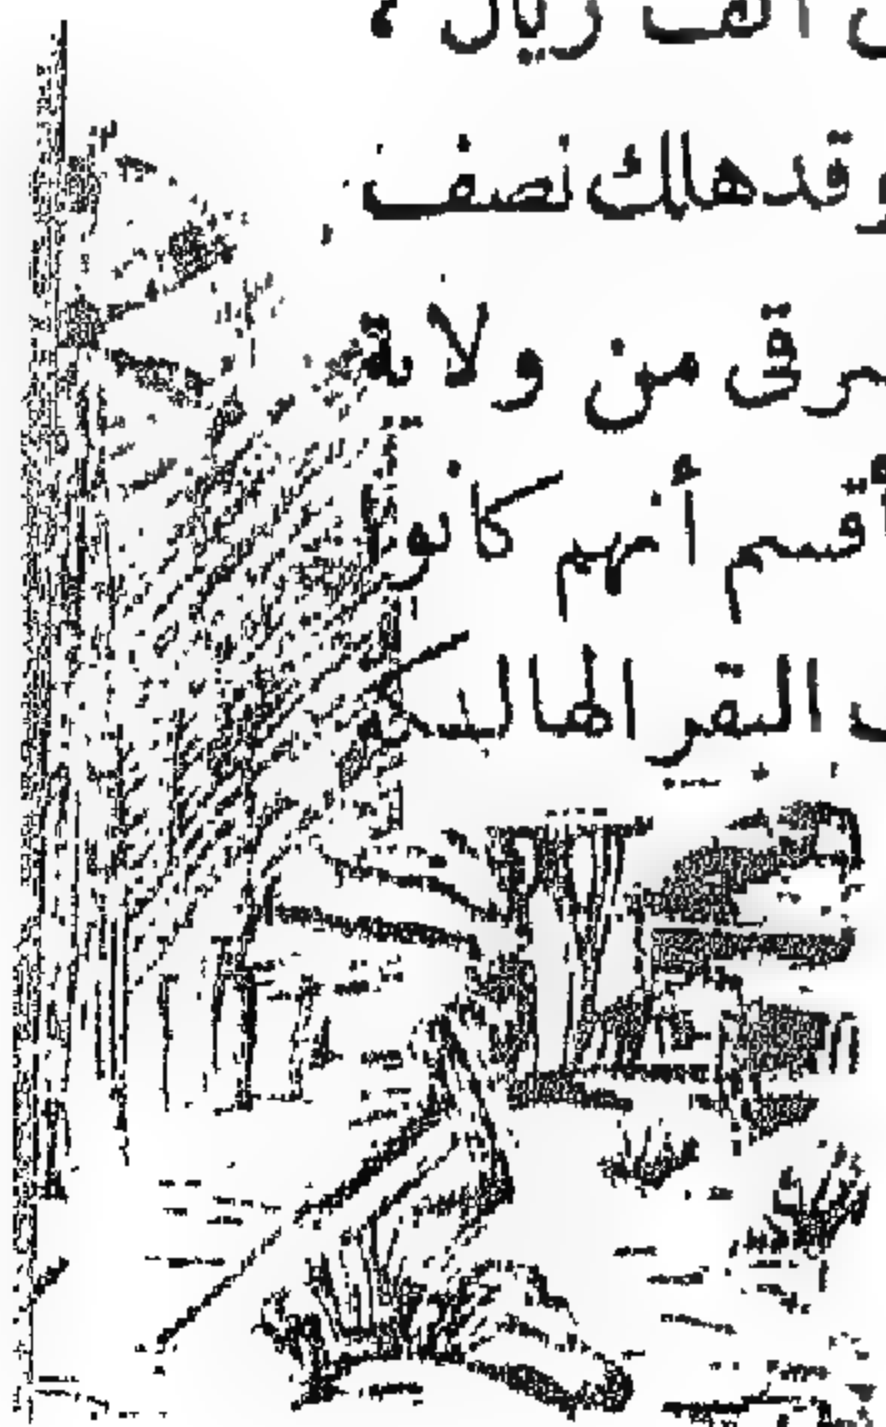 ألف ريال ،
وقد هلك نصف
من ولاية
أقسم أنهم كانوا
البقر الهالكة